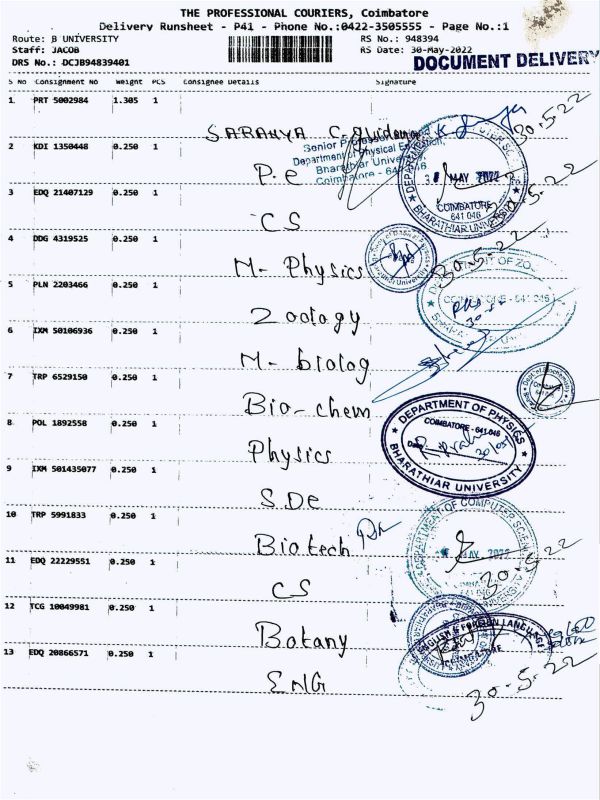 THE PROFESSIONAL COURIERS, Coimbatore
Delivery Runsheet - P41 - Phone No.:0422-3505555 - Page No.:1
Route: B UNIVERSITY RS No.: 948394
Staff: JACOB RS Date: 30-May-2022
DRS No.: DCJB94839401 DOCUMENT DELIVERY
S No Consignment No Weight PCS Consignee Details Signature
1 PRT 5002984 1.305 1
SARANYA C.
2 KDI 1350448 0.250 1
Senior
Department of Physical Education,
Bharathiar University,
Coimbatore - 641 046
P.e
30.5.22
3 EDQ 21407129 0.250 1
DEPARTMENT OF COMPUTER SCI
MAY 2022
COIMBATORE
641 046
BHARATHIAR UNIVERSITY
CS
4 DDG 4319525 0.250 1
M- Physics
30.5.22
5 PLN 2203466 0.250 1
OF ZOO
COIMBATORE - 641 046
Zoology
6 IXM 50106936 0.250 1
M- biolog
7 TRP 6529150 0.250 1
Bio-chem
8 POL 1892558 0.250 1
DEPARTMENT OF PHYSICS
COIMBATORE - 641 046
Date
BHARATHIAR UNIVERSITY
Physics
9 IXM 501435077 0.250 1
S.De
10 TRP 5991833 0.250 1
DEPARTMENT OF COMPUTER SCIEN
MAY 2022
641 046
Biotech
11 EDQ 22229551 0.250 1
CS
30.5.22
12 TCG 10049981 0.250 1
Botany
ENGLISH & FOREIGN LANGUAGE
COIMBATORE
13 EDQ 20866571 0.250 1
ENG
30.5.22